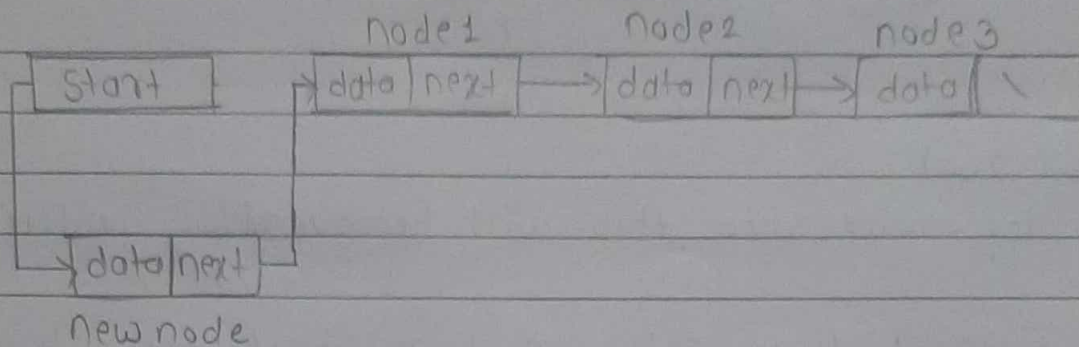 node1 node2 node3
Start data next data next data \
data next
new node